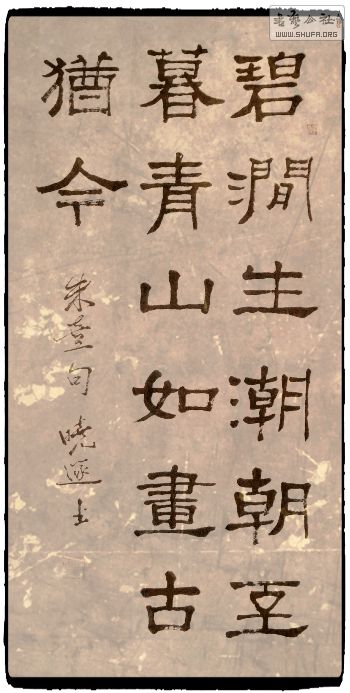 碧澗生潮朝至
暮青山如畫古
猶今
朱熹句 曉遜書
書藝公社
WWW.SHUFA.ORG